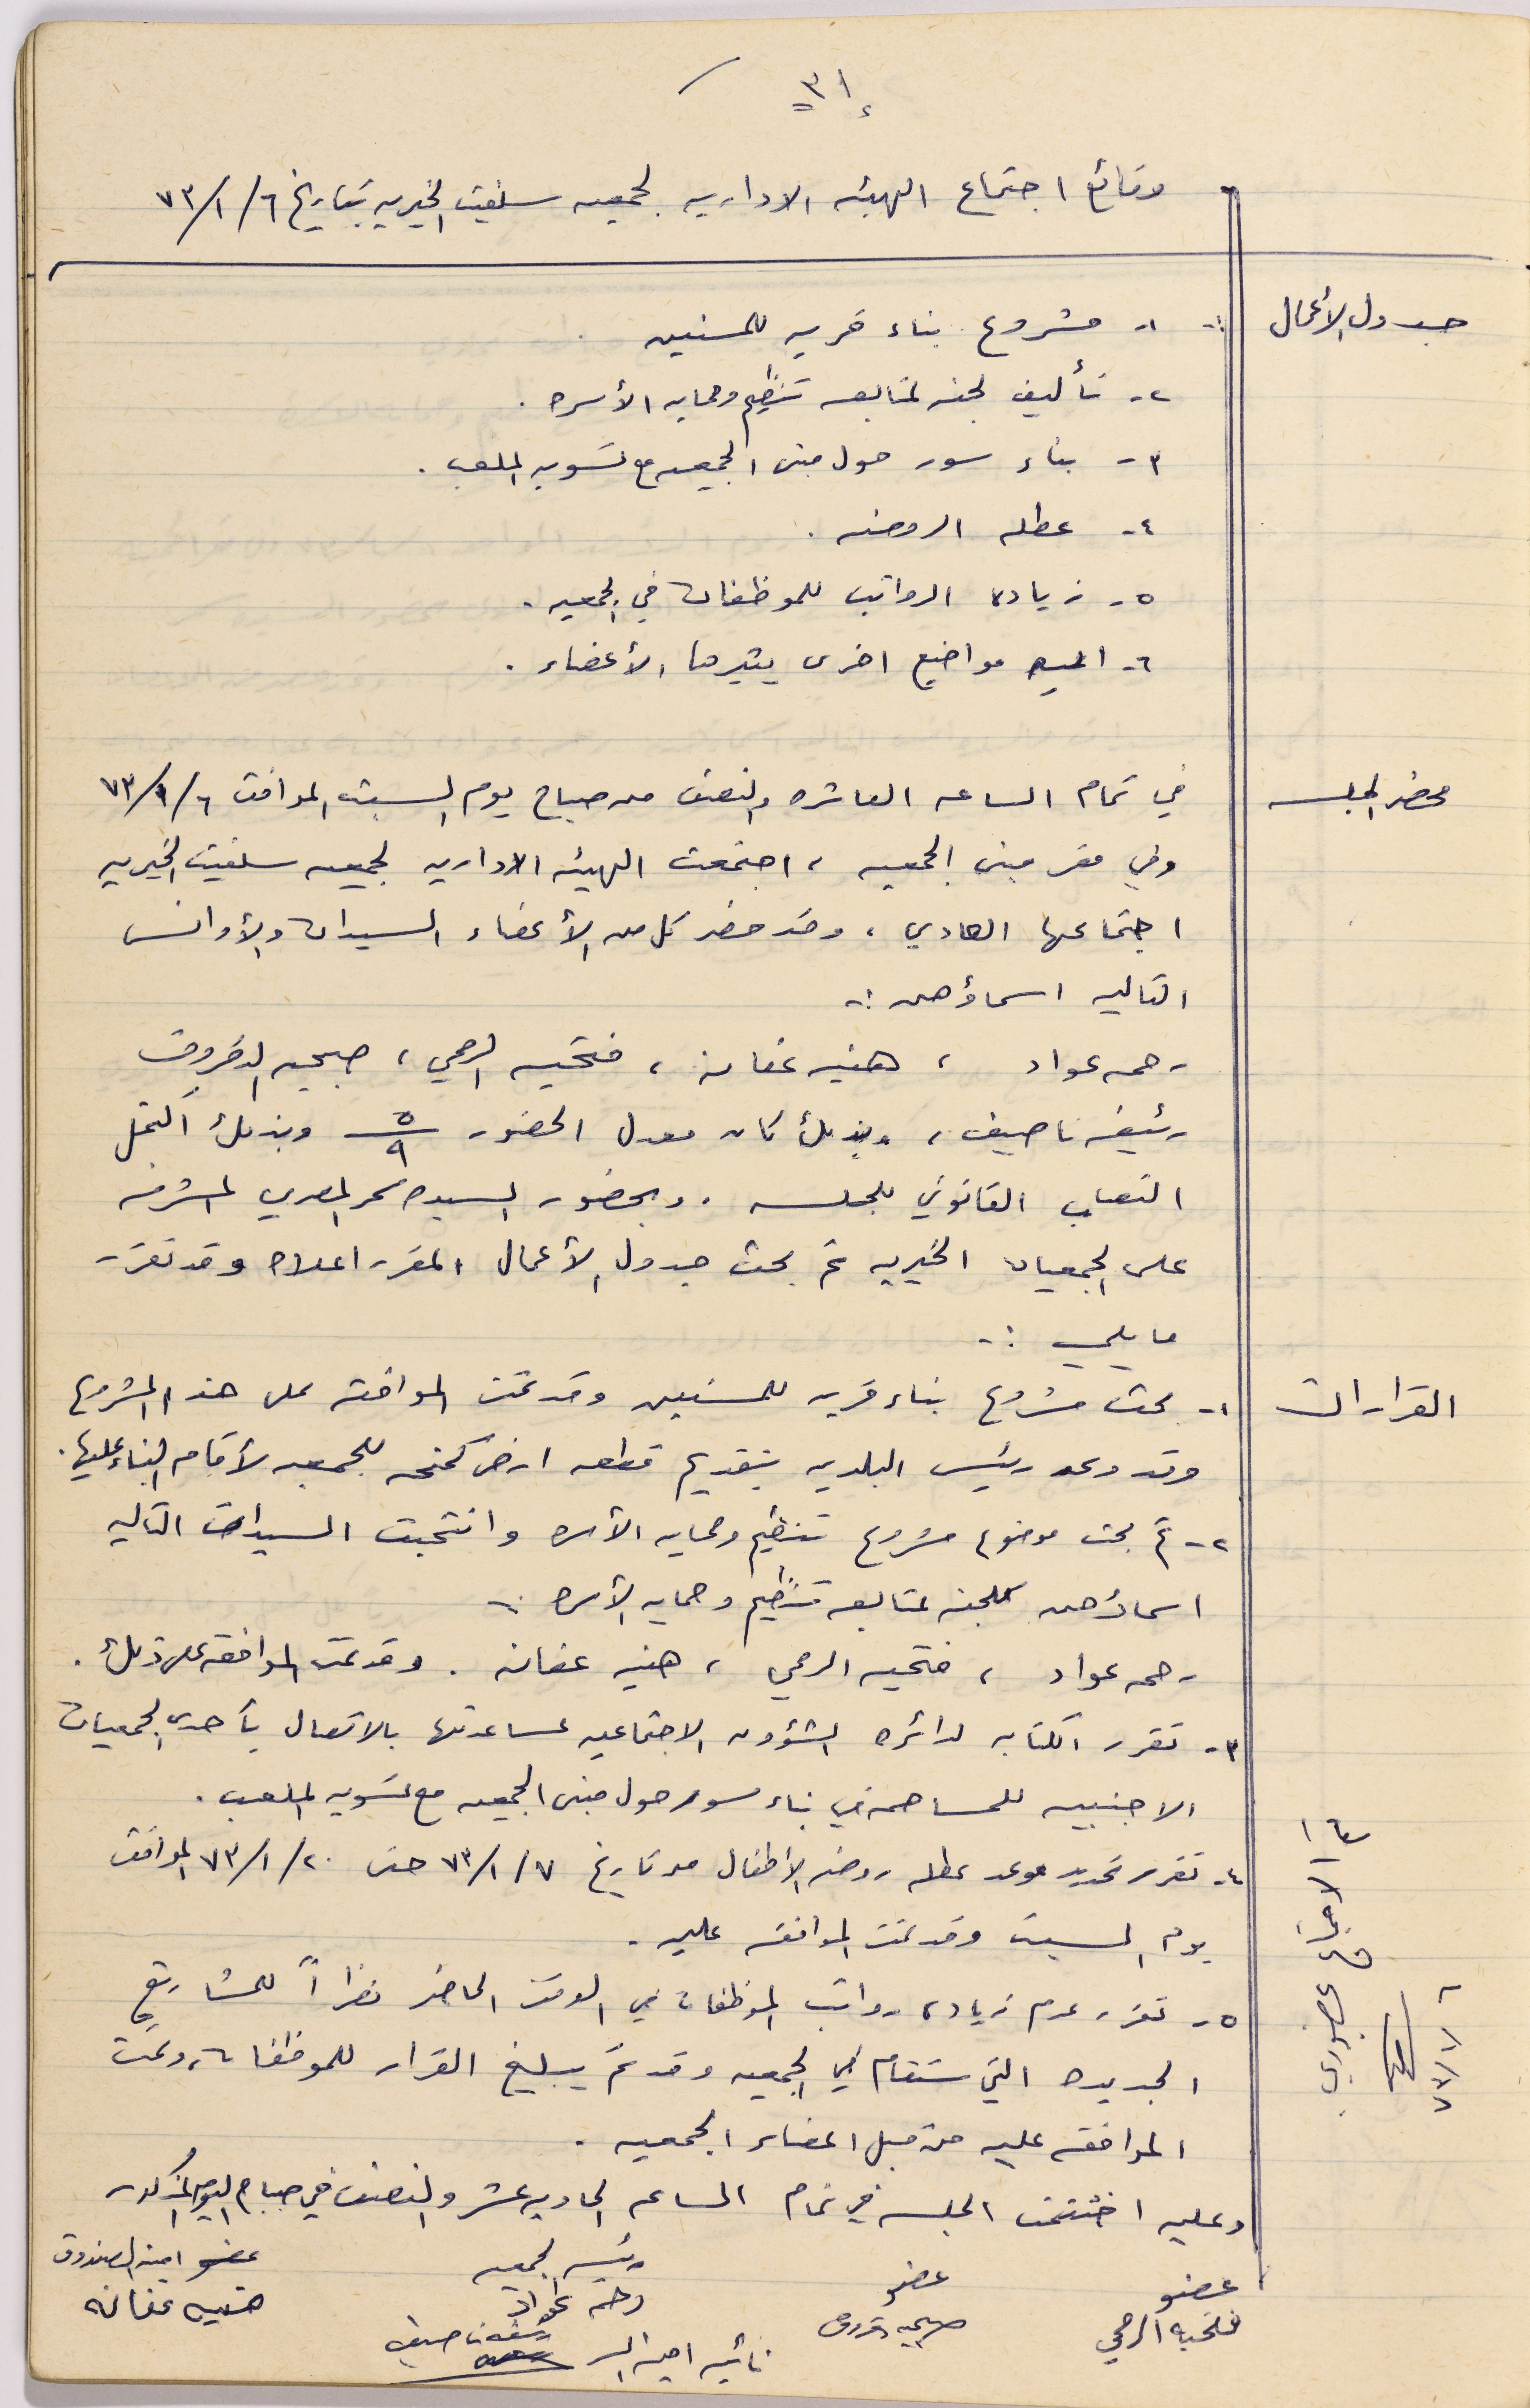 ٣١
وقائع اجتماع الهيئه الاداريه لجمعيه سلفيت الخيريه بتاريخ ٦/١/٧٣
جدول الأعمال :-
١- مشروع بناء قريه للمسنين
٢- تأليف لجنه لمتابعه تنظيم وحمايه الأسره .
٣- بناء سور حول مبنى الجمعيه مع تسويه الملعب .
٤- عطله الروضه .
٥- زيادة الرواتب للموظفات في الجمعيه .
٦- اية مواضيع اخرى يثيرها الأعضاء .
محضر الجلسه
في تمام الساعه العاشره والنصف من صباح يوم السبت الموافق ٦/١/٧٣
وفي مقر مبنى الجمعيه ، اجتمعت الهيئه الاداريه لجمعيه سلفيت الخيريه
اجتماعها العادي ، وقد حضر كل من الأعضاء السيدات والأوانس
التاليه اسماؤهن :-
رحمه عواد ، هنيه عفانه ، فتحيه الرمحي ، صبحيه الدقروق
رئيفه ناصيف ، وبذلك كان معدل الحضور ٥/٩ وبذلك اكتمل
النصاب القانوني للجلسه . وبحضور السيده سحر المصري المشرفه
على الجمعيات الخيريه تم بحث جدول الأعمال المقرر اعلاه وقد تقرر
ما يلي :-
القرارات
١- بحث مشروع بناء قريه للمسنين وقد تمت الموافقه على هذا المشروع
وقد وعد رئيس البلديه بتقديم قطعه ارض كمنحه للجمعيه لأقام البناء عليها .
٢- تم بحث موضوع مشروع تنظيم وحمايه الأسره وانتخبت السيدات التاليه
اسماؤهن كلجنه لمتابعه تنظيم وحمايه الأسره :-
رحمه عواد ، فتحيه الرمحي ، هنيه عفانه . وقد تمت الموافقه على ذلك .
٣- تقرر الكتابه لدائره الشؤون الاجتماعيه لمساعدتها بالاتصال بأحدى الجمعيات
الاجنبيه للمساهمه في بناء سور حول مبنى الجمعيه مع تسويه الملعب .
٤- تقرر تحديد موعد عطله روضه الأطفال من تاريخ ٧/١/٧٣ حتى ٢٠/١/٧٣ الموافق
يوم السبت وقد تمت الموافقه عليه .
٥- تقرر عدم زيادة رواتب الموظفات في الوقت الحاضر نظراً للمشاريع
الجديده التي ستقام في الجمعيه وقد تم تبليغ القرار للموظفات وتمت
الموافقه عليه من قبل اعضاء الجمعيه .
وعليه اختتمت الجلسه في تمام الساعه الحاديه عشر والنصف في صباح اليوم المذكور
عضو
فتحيه الرمحي
عضو
صبحيه دقروق
رئيسه الجمعيه
رحمه عواد
عضو امينه الصندوق
هنيه عفانه
نائبه امينه السر
رئيفه ناصيف
الاجتماع بحضوري